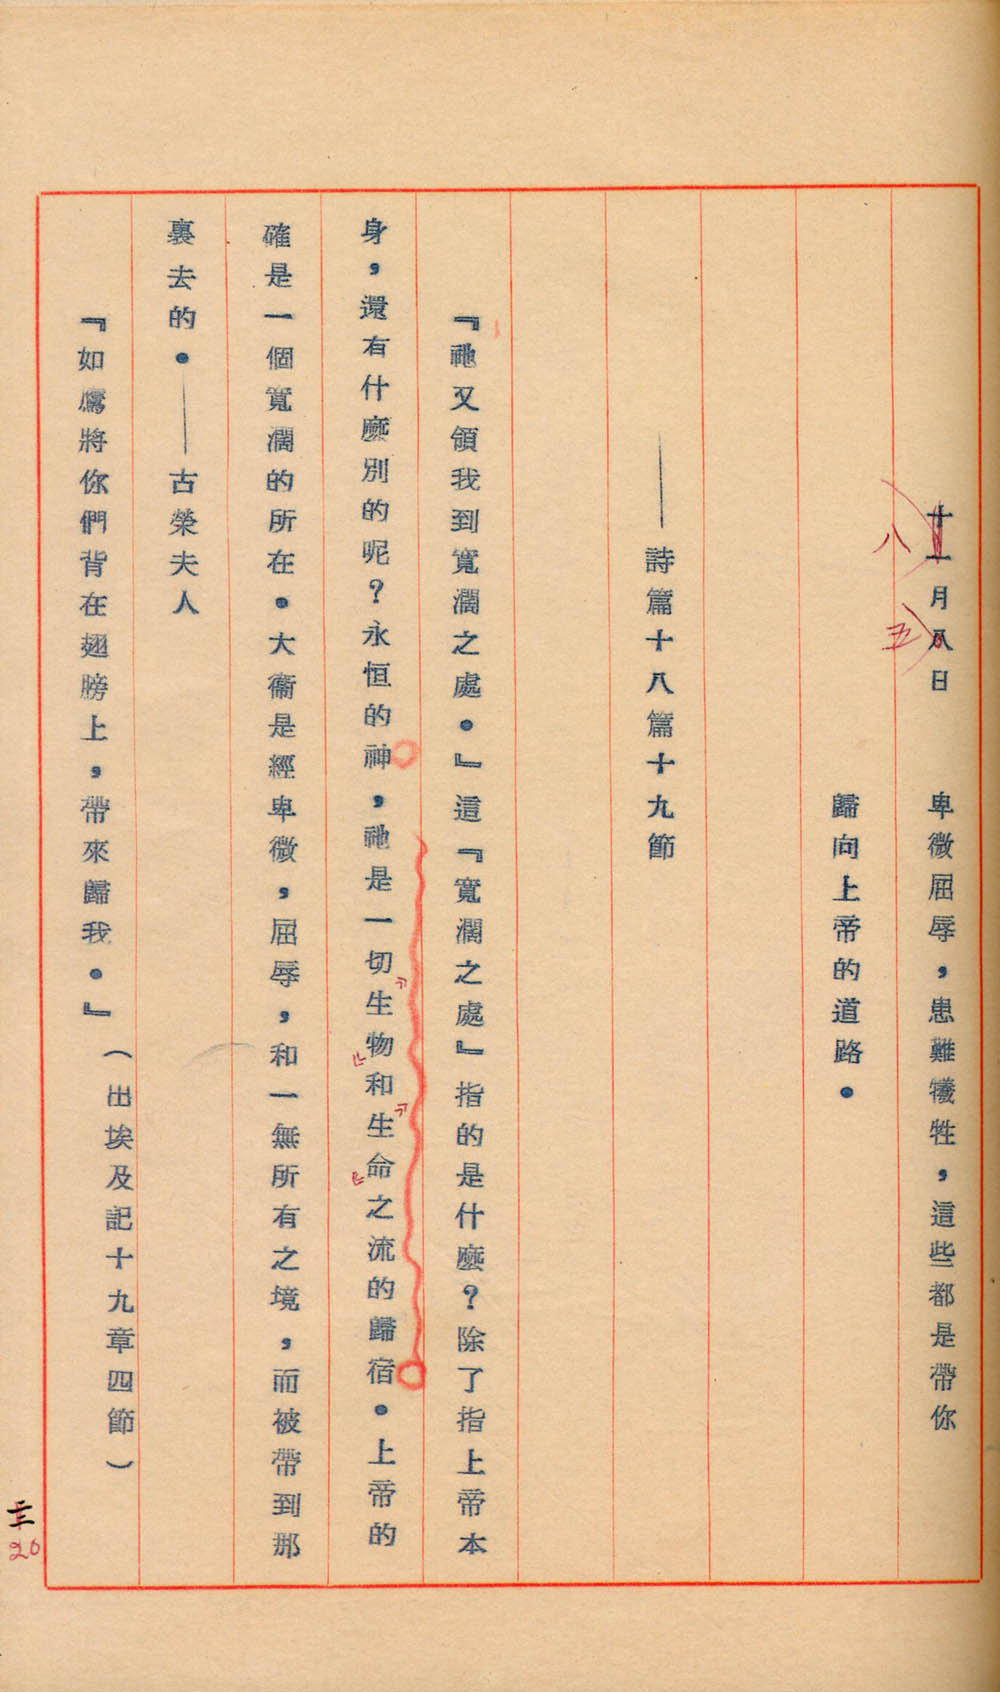 十一月八日　卑微屈辱，患難犧牲，這些都是帶你
八
五
歸向上帝的道路。
——詩篇十八篇十九節
『祂又領我到寬濶之處。』這『寬濶之處』指的是什麼？除了指上帝本
身，還有什麼別的呢？永恒的神，祂是一切生物和生命之流的歸宿。上帝的
確是一個寬濶的所在。大衞是經卑微，屈辱，和一無所有之境，而被帶到那
裏去的。——古榮夫人
『如鷹將你們背在翅膀上，帶來歸我。』（出埃及記十九章四節）
20